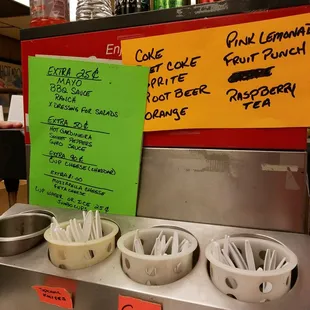 Enj
EXTRA 25¢
MAYO
BBQ SAUCE
RANCH
X DRESSING FOR SALADS
EXTRA 50¢
HOT GIARDINIERA
SWEET PEPPERS
GYRO SAUCE
EXTRA 90¢
CUP CHEESE (CHEDDAR)
EXTRA 1.00
MOZZARELLA CHEESE
FETA CHEESE
CUP WATER OR ICE 25¢
COKE
DIET COKE
SPRITE
ROOT BEER
ORANGE
PINK LEMONADE
FRUIT PUNCH
RASPBERRY
TEA
KNIVES